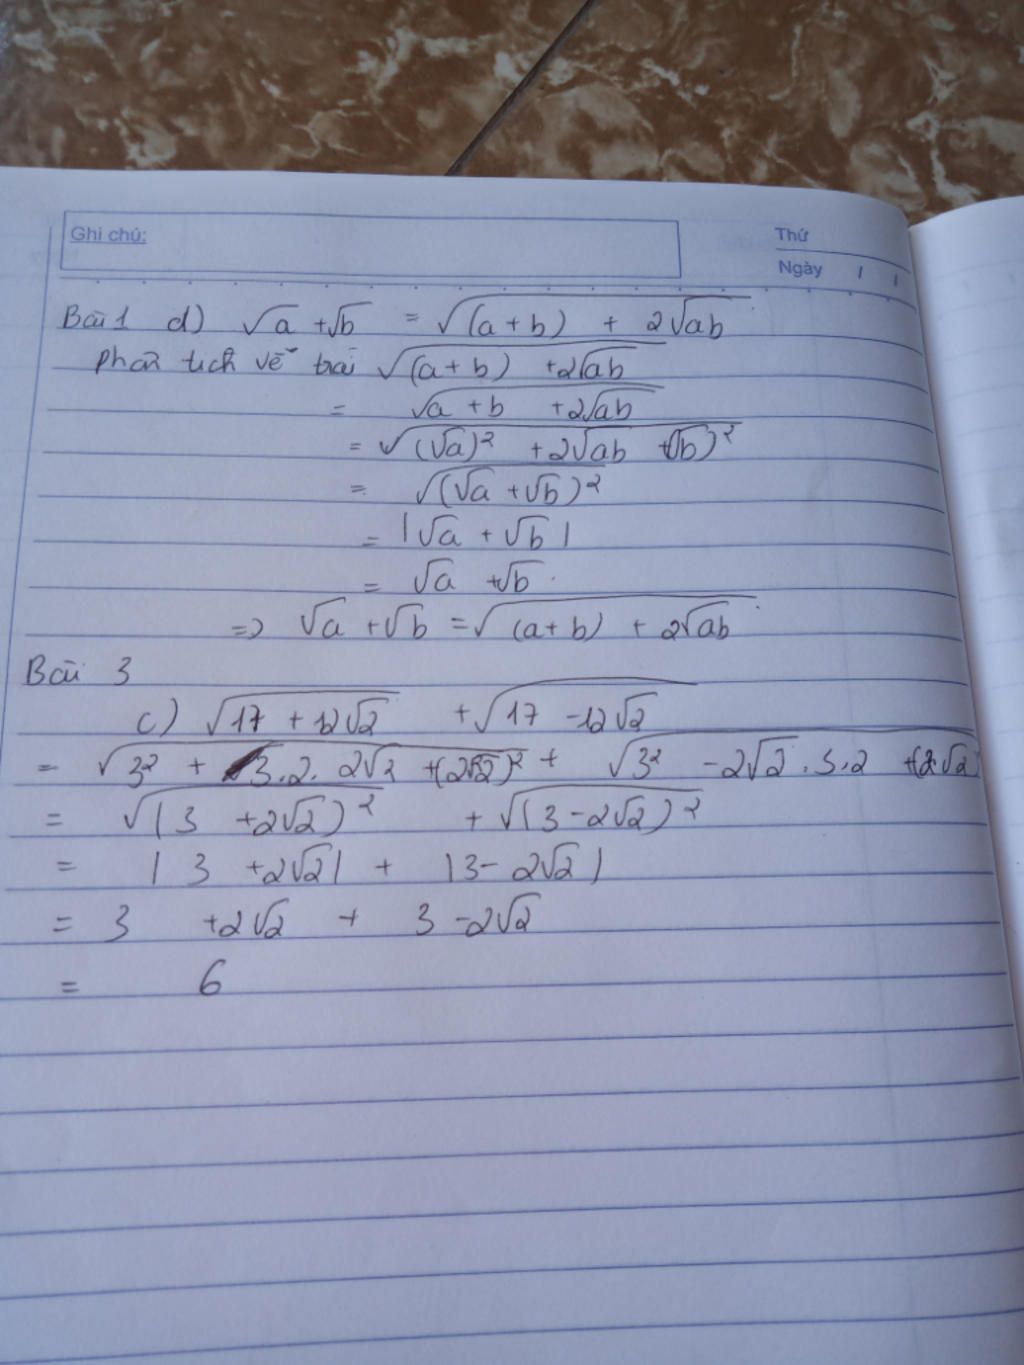 Ghi chú:
Thứ
Ngày / /
Bài 1 d) √a + √b = √((a+b) + 2√ab)
phân tích vế trái √((a+b) + 2√ab)
= √(a + b + 2√ab)
= √((√a)² + 2√ab + (√b)²)
= √((√a + √b)²)
= |√a + √b|
= √a + √b.
=> √a + √b = √((a+b) + 2√ab)
Bài 3
c) √(17 + 12√2) + √(17 - 12√2)
= √(3² + 3.2.2√2 + (2√2)²) + √(3² - 2√2.3.2 + (2√2)
= √((3 + 2√2)²) + √((3 - 2√2)²)
= |3 + 2√2| + |3 - 2√2|
= 3 + 2√2 + 3 - 2√2
= 6